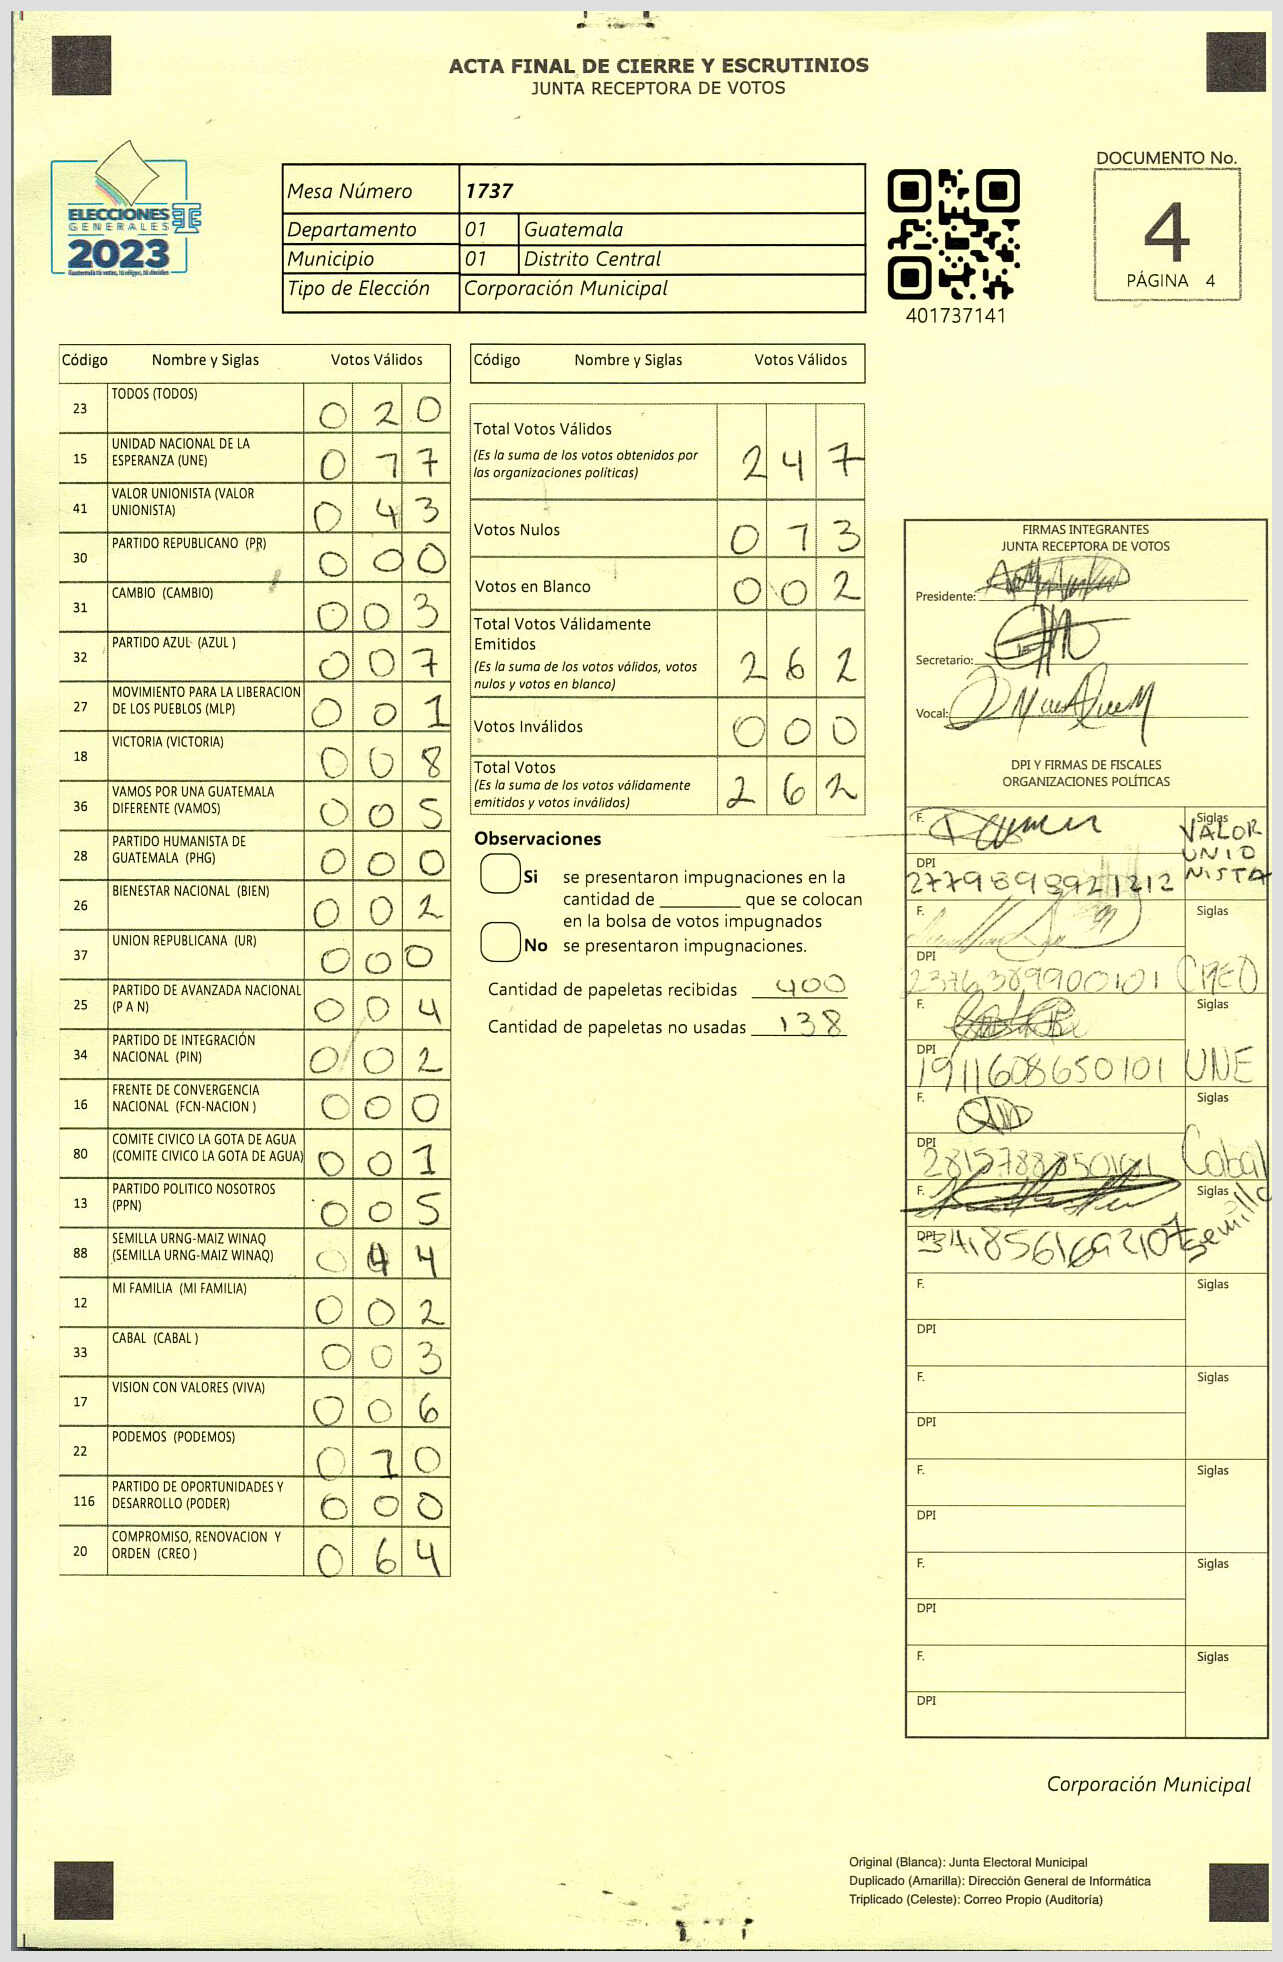 ACTA FINAL DE CIERRE Y ESCRUTINIOS
JUNTA RECEPTORA DE VOTOS
ELECCIONES
GENERALES
2023
Mesa Número 1737
Departamento 01 Guatemala
Municipio 01 Distrito Central
Tipo de Elección Corporación Municipal
401737141
DOCUMENTO No.
4
PÁGINA 4
Código Nombre y Siglas Votos Válidos
23 TODOS (TODOS) 0 2 0
15 UNIDAD NACIONAL DE LA
ESPERANZA (UNE) 0 1 7
41 VALOR UNIONISTA (VALOR
UNIONISTA) 0 4 3
30 PARTIDO REPUBLICANO (PR) 0 0 0
31 CAMBIO (CAMBIO) 0 0 3
32 PARTIDO AZUL (AZUL ) 0 0 7
27 MOVIMIENTO PARA LA LIBERACION
DE LOS PUEBLOS (MLP) 0 0 1
18 VICTORIA (VICTORIA) 0 0 8
36 VAMOS POR UNA GUATEMALA
DIFERENTE (VAMOS) 0 0 5
28 PARTIDO HUMANISTA DE
GUATEMALA (PHG) 0 0 0
26 BIENESTAR NACIONAL (BIEN) 0 0 2
37 UNION REPUBLICANA (UR) 0 0 0
25 PARTIDO DE AVANZADA NACIONAL
(P A N) 0 0 4
34 PARTIDO DE INTEGRACIÓN
NACIONAL (PIN) 0 0 2
16 FRENTE DE CONVERGENCIA
NACIONAL (FCN-NACION ) 0 0 0
80 COMITE CIVICO LA GOTA DE AGUA
(COMITE CIVICO LA GOTA DE AGUA) 0 0 1
13 PARTIDO POLITICO NOSOTROS
(PPN) 0 0 5
88 SEMILLA URNG-MAIZ WINAQ
(SEMILLA URNG-MAIZ WINAQ) 0 4 4
12 MI FAMILIA (MI FAMILIA) 0 0 2
33 CABAL (CABAL ) 0 0 3
17 VISION CON VALORES (VIVA) 0 0 6
22 PODEMOS (PODEMOS) 0 1 0
116 PARTIDO DE OPORTUNIDADES Y
DESARROLLO (PODER) 0 0 0
20 COMPROMISO, RENOVACION Y
ORDEN (CREO ) 0 6 4
Código Nombre y Siglas Votos Válidos
Total Votos Válidos
(Es la suma de los votos obtenidos por
las organizaciones políticas) 2 4 7
Votos Nulos 0 1 3
Votos en Blanco 0 0 2
Total Votos Válidamente
Emitidos
(Es la suma de los votos válidos, votos
nulos y votos en blanco) 2 6 2
Votos Inválidos 0 0 0
Total Votos
(Es la suma de los votos válidamente
emitidos y votos inválidos) 2 6 2
Observaciones
Si se presentaron impugnaciones en la
cantidad de ________ que se colocan
en la bolsa de votos impugnados
No se presentaron impugnaciones.
Cantidad de papeletas recibidas 400
Cantidad de papeletas no usadas 138
FIRMAS INTEGRANTES
JUNTA RECEPTORA DE VOTOS
Presidente:
Secretario:
Vocal:
DPI Y FIRMAS DE FISCALES
ORGANIZACIONES POLÍTICAS
F. Siglas
VALOR
UNIO
NISTA
DPI
2779898921212
F. Siglas
DPI
2376389900101 CREO
F. Siglas
DPI
1911608650101 UNE
F. Siglas
DPI
Cabal
F. Siglas
DPI
3418561692107 Semilla
F. Siglas
DPI
F. Siglas
DPI
F. Siglas
DPI
F. Siglas
DPI
F. Siglas
DPI
Corporación Municipal
Original (Blanca): Junta Electoral Municipal
Duplicado (Amarilla): Dirección General de Informática
Triplicado (Celeste): Correo Propio (Auditoría)